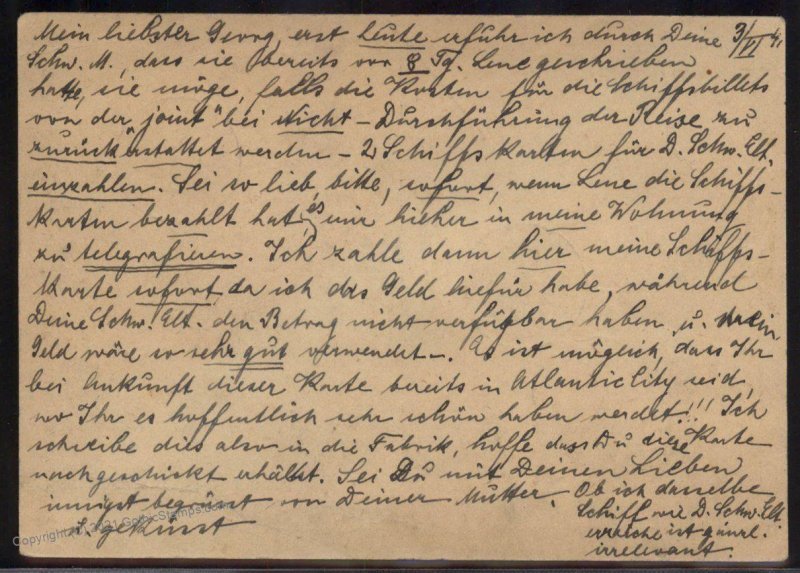 Mein liebster Georg, erst heute erfuhr ich durch Deine 3/VI 41
Schw. M., dass sie bereits vor 8 Tg. Lene geschrieben
hatte, sie möge, falls die Kosten für die Schiffsbillets
von der "joint" bei Nicht-Durchführung der Reise zu
zurück erstattet werden - 2 Schiffskarten für D. Schw. Elt.
einzahlen. Sei so lieb, bitte, sofort, wenn Lene die Schiffs-
karten bezahlt hat, es mir hieher in meine Wohnung
zu telegrafieren. Ich zahle dann hier meine Schiffs-
Karte sofort, da ich das Geld hiefür habe, während
Deine Schw. Elt. den Betrag nicht verfügbar haben u. mein
Geld wäre so sehr gut verwendet -. Es ist möglich, dass Ihr
bei Ankunft dieser Karte bereits in Atlantic City seid,
wo Ihr es hoffentlich sehr schön haben werdet!!! Ich
schreibe dies also in die Fabrik, hoffe dass Du diese Karte
nachgeschickt erhältst. Sei Du mit Deinen Lieben
innigst begrüsst von Deiner Mutter.
u. geküsst
Ob ich dasselbe
Schiff wie D. Schw. Elt.
erreiche ist gänzl.
irrelevant.
Copyright (C) 2021 GothicStamps.com